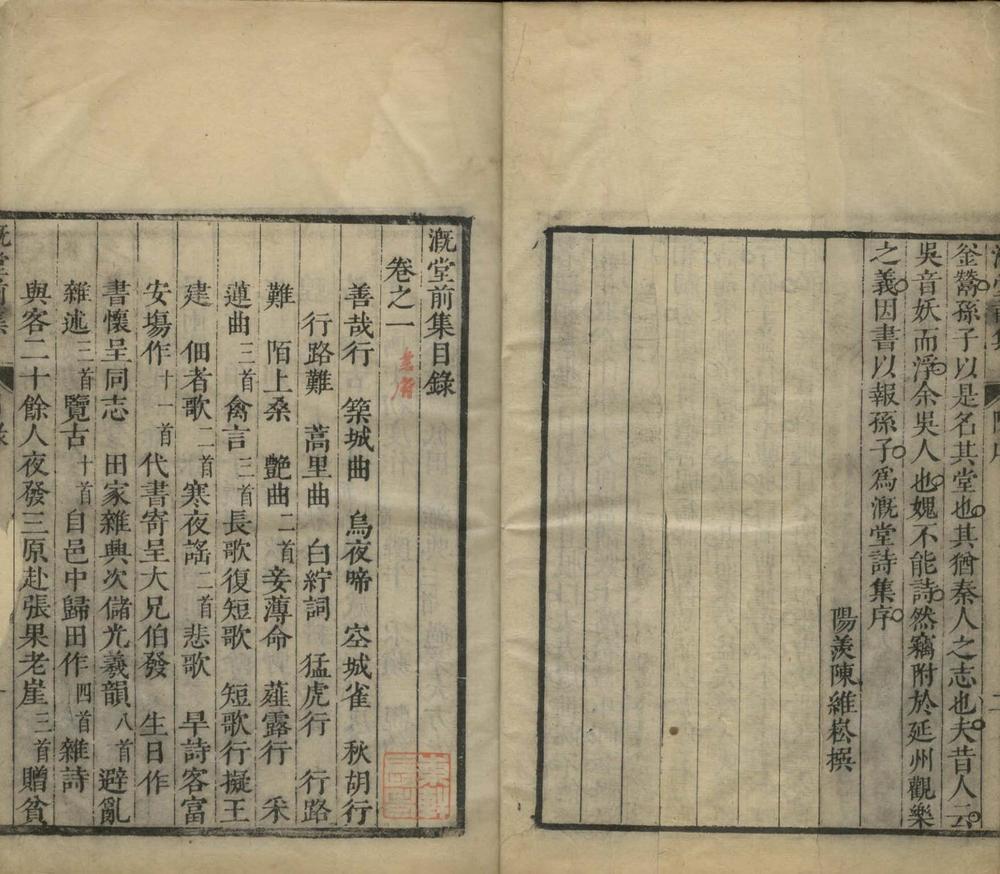 釜鬵孫子以是名其堂也其猶秦人之志也夫昔人云
吳音妖而浮余吳人也媿不能詩然竊附於延州觀樂
之義因書以報孫子為溉堂詩集序
陽羨陳維崧撰
溉堂前集目錄
卷之一
善哉行 築城曲 烏夜啼 空城雀 秋胡行
行路難 蒿里曲 白紵詞 猛虎行 行路
難 陌上桑 艷曲二首 妾薄命 薤露行 采
蓮曲三首 禽言三首 長歌復短歌 短歌行擬王
建 佃者歌二首 寒夜謠二首 悲歌 早詩客富
安塲作十一首 代書寄呈大兄伯發 生日作
書懷呈同志 田家雜興次儲光羲韻八首 避亂
雜述三首 覽古十首 自邑中歸田作四首 雜詩
與客二十餘人夜發三原赴張果老崖三首 贈貧
溉堂前集